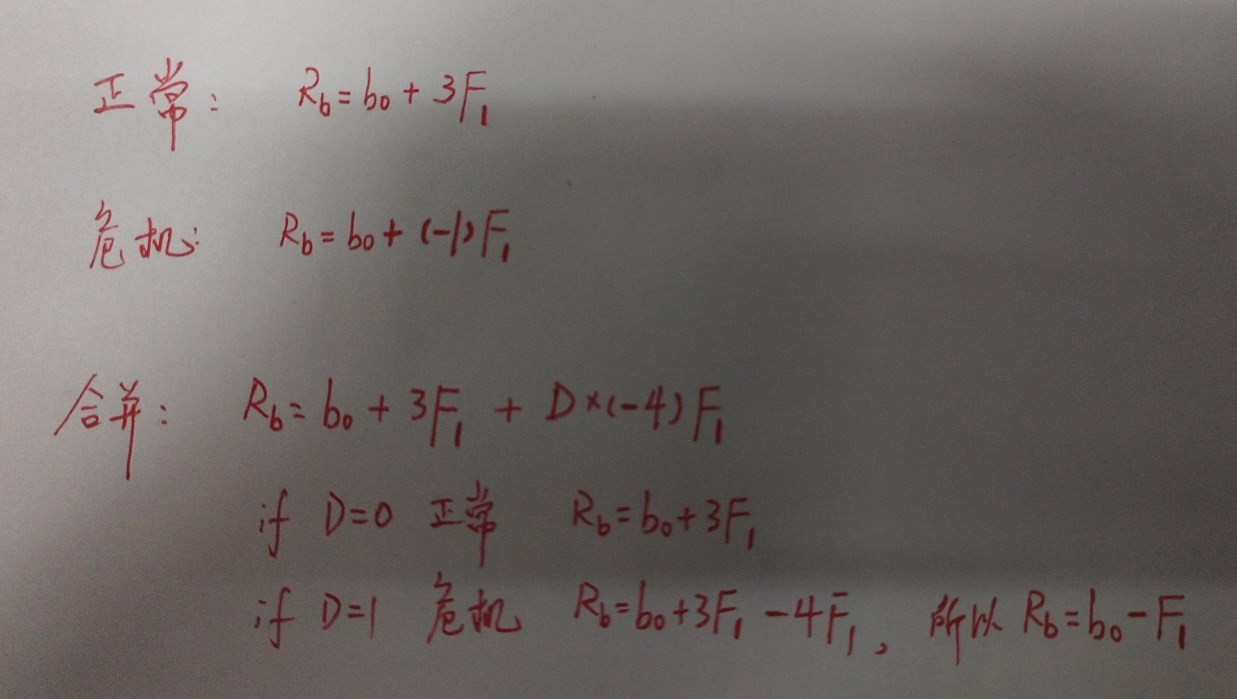 正常: R_b = b_0 + 3F_1
危机: R_b = b_0 + (-1)F_1
合并: R_b = b_0 + 3F_1 + D×(-4)F_1
if D=0 正常 R_b = b_0 + 3F_1
if D=1 危机 R_b = b_0 + 3F_1 - 4F_1, 所以 R_b = b_0 - F_1